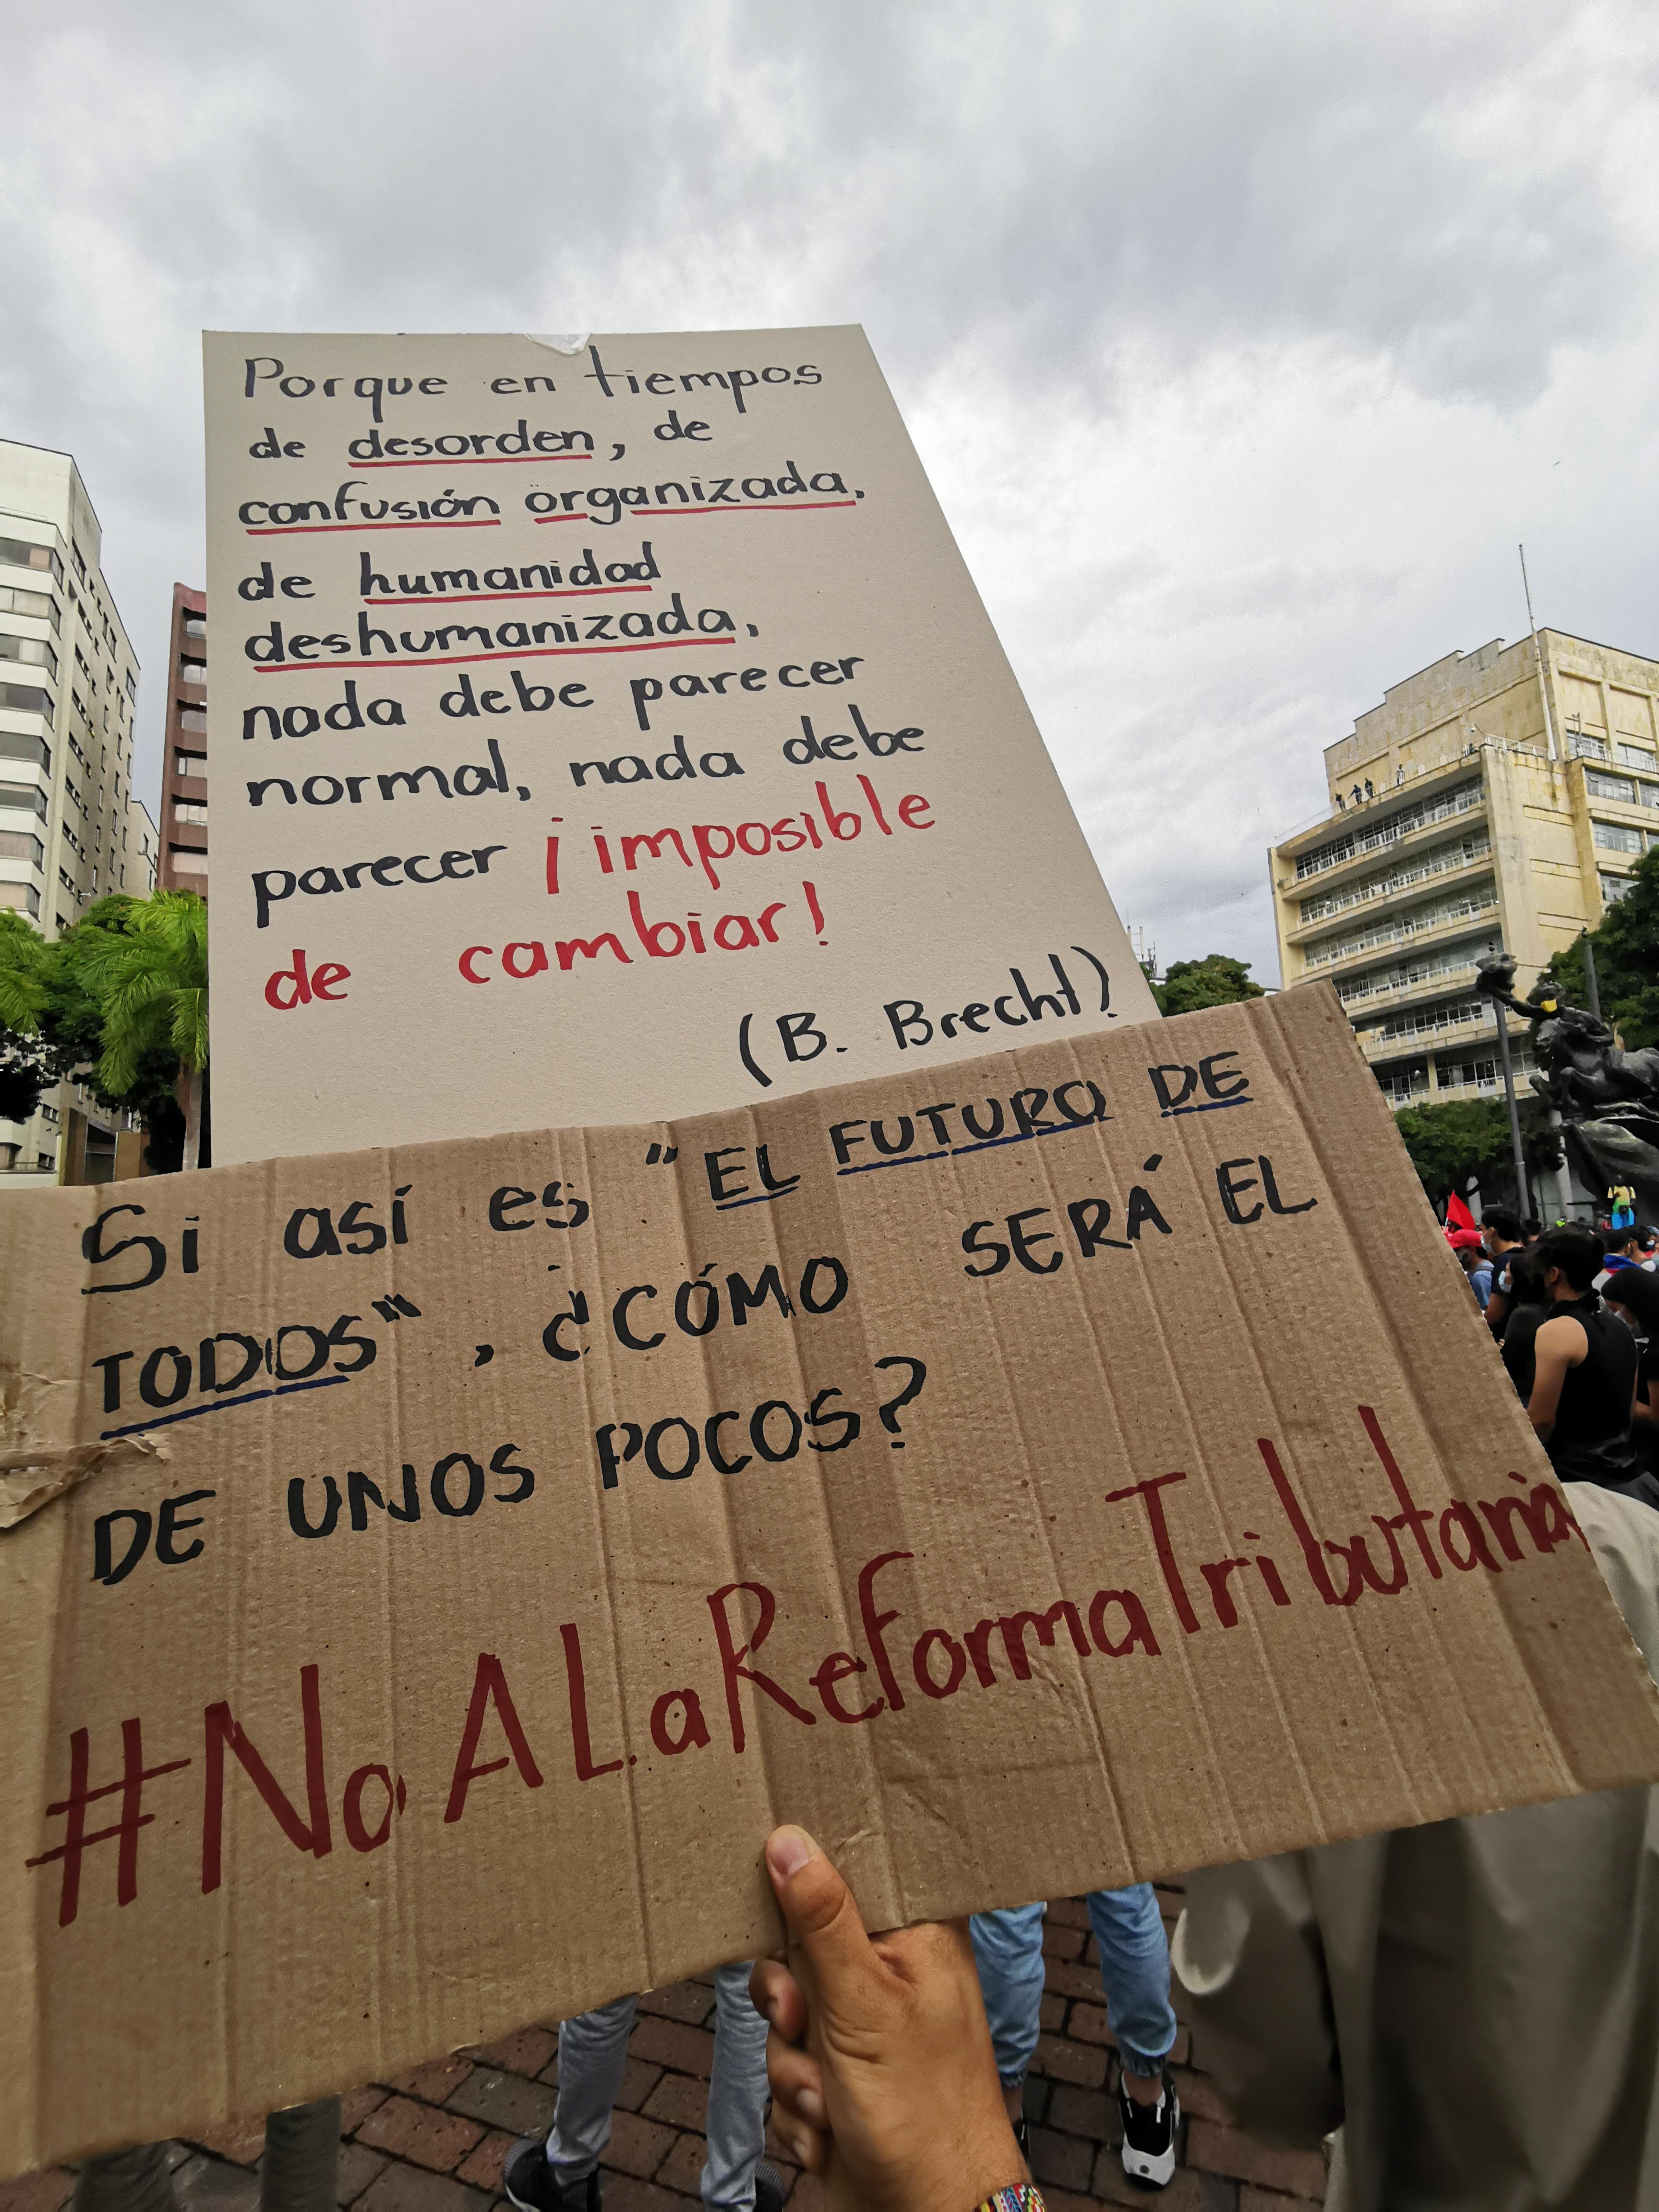 Porque en tiempos
de desorden, de
confusión organizada,
de humanidad
deshumanizada,
nada debe parecer
normal, nada debe
parecer ¡imposible
de cambiar!
(B. Brecht)
Si así es "EL FUTURO DE
TODOS", ¿CÓMO SERÁ EL
DE UNOS POCOS?
#NoALaReformaTributaria